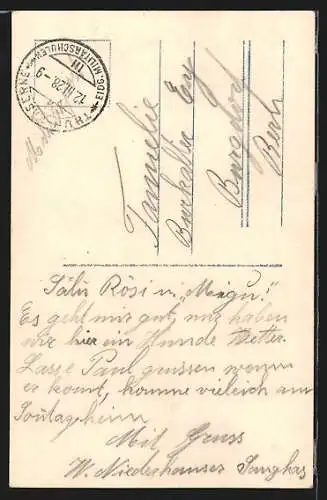 THUN KASERNE
EIDG. MILITÄRSCHULEN
III
12.III.28.-9
Familie
Burkalter Ey
Burgdorf
Bern
Salü Rösi u. „Meigu"!
Es geht mir gut, nur haben
wir hier ein Hunde Wetter.
Lasse Paul grüssen wenn
er komt, komme vieleich am
Sontag heim
Mit Gruss
W. Niederhauser